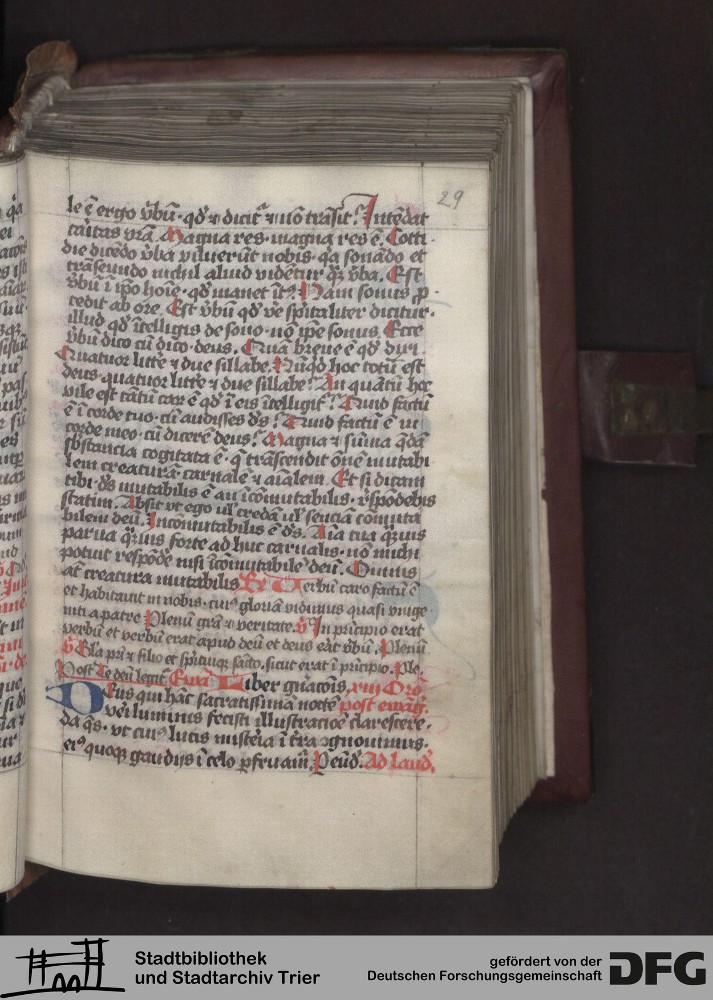 29
le ē ergo v̄bū · qd̄ ⁊ dicit̄ ⁊ nō trāsit? Intēdat
caritas vrā. Magna res · magna res ē. Cotti
die dicēdo v̄ba viluerūt nobis · qa sonādo et
trāseundo nichil aliud vidētur qͣ v̄ba. Est
v̄bū ī ipo hoīe · qd̄ manet īt9. Nam sonus p̲
cedit ab ore. Est v̄bū qd̄ ve spūaliter dicitur ·
illud qd̄ ītelligis de sono · nō ipe sonus. Ecce
v̄bū dico cū dico · deus. Quā breue ē qd̄ dixi.
Quatuor litt̄e ⁊ due sillabe. Nūqd̄ hoc totū est
deus · quatuor litt̄e ⁊ due sillabe? An quātū hoc
vile est tātū car̄ ē qd̄ ī eis ītelligit̄? Quid factū
ē ī corde tuo · cū audisses ds̄? Quid factū ē in
corde meo · cū dicerē deus? Magna ⁊ sūma qd̄ā
sb̄stancia cogitata ē · q̄ trāscendit om̄nē mutabi
lem creaturā · carnalē ⁊ aīalem. Et si dicam
tibi · ds̄ mutabilis ē an īcōmutabilis · rn̄spōdebis
statim. Absit vt ego ul̄ credā ul̄ senciā cōmuta
bilem deū. Incōmutabilis ē ds̄. Aīa tua qͣuis
parua qͣuis forte ad huc carnalis · nō michi
potuit respōdē nisi īcōmutabilē deū. Omnis
at̄ creatura mutabilis. R͂ Verbū caro factū ē
et habitauit in nobis · cui9 gloriā vidimus quasi vnige
niti a patre Plenū grā ⁊ veritate. v̄ In prīcipio erat
verbū et verbū erat apud deū et deus erat v̄bū. Plenū
v̄ Gl̄a pri ⁊ filio et spirituiqꝫ scō, sicut erat ī prīcipio. Ple.
Post Te deū legit̄ Ewā Liber gn̄acōis, Orō
Deus qui hāc sacratissimā noctē post ewāg.
veri luminis fecisti illustracōe clarescere ·
da qs̄ · vt cui9 lucis misteria ī tra ꝯgnouimus ·
ei9 quoqꝫ gaudijs ī celo p̲fruam̄. Ad laud̄.
Stadtbibliothek
und Stadtarchiv Trier
gefördert von der
Deutschen Forschungsgemeinschaft
DFG